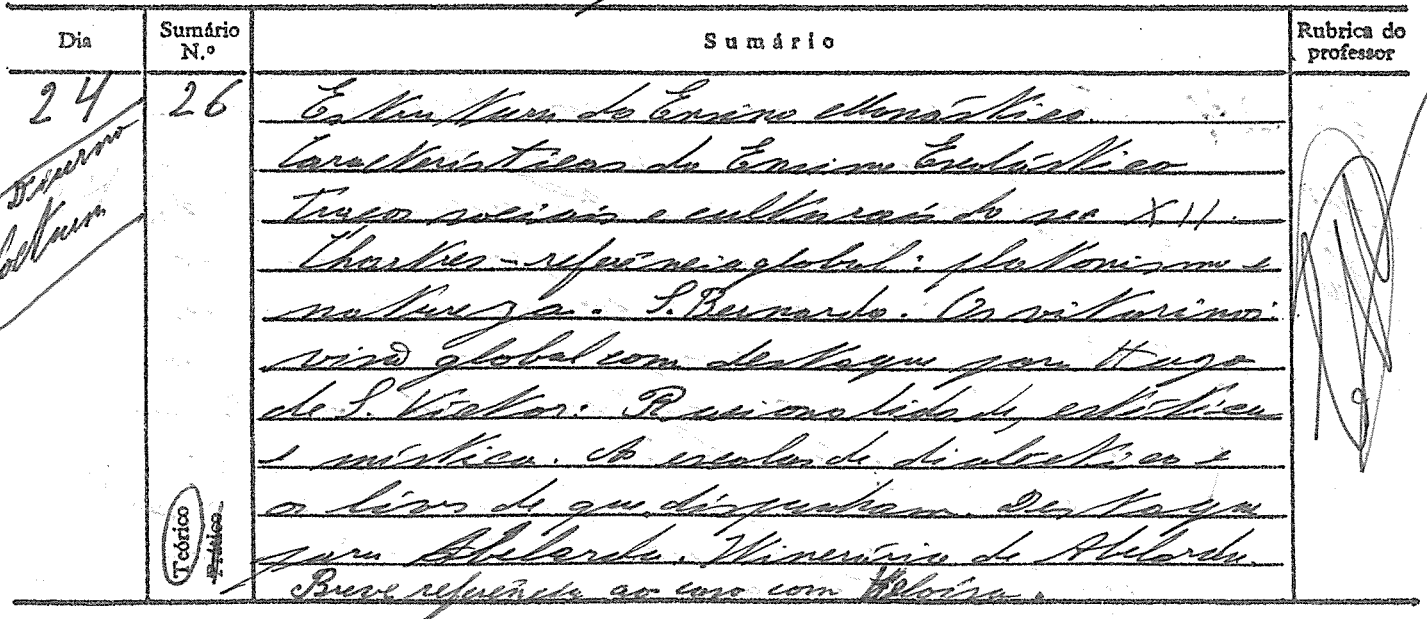 Dia Sumário N.º Sumário Rubrica do professor
24 26 Estrutura do Ensino Monástico.
Diurno Características do Ensino Escolástico
Nocturno Traços sociais e culturais do sec XII.
Chartres - referência global: platonismo e
natureza. S. Bernardo. Os vitorinos:
visão global com destaque para Hugo
de S. Victor: Racionalidade, estética
e mística. As escolas de dialectica e
os livros de que dispunham. Destaque
para Abelardo. Itinerário de Abelardo.
Breve referência ao caso com Heloísa.
Teórico
Prático